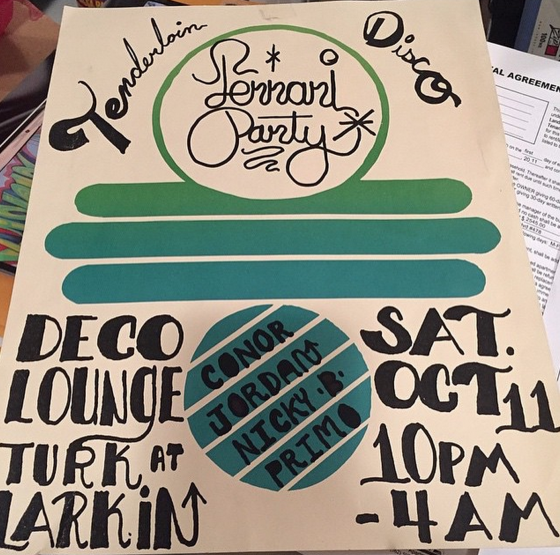 Tenderloin
Disco
Tennant
Party
DECO
LOUNGE
TURK AT
LARKIN
CONOR
JORDAN
NICKY .B.
PRIMO
SAT.
OCT 11
10PM
- 4 AM
AL AGREEMEN